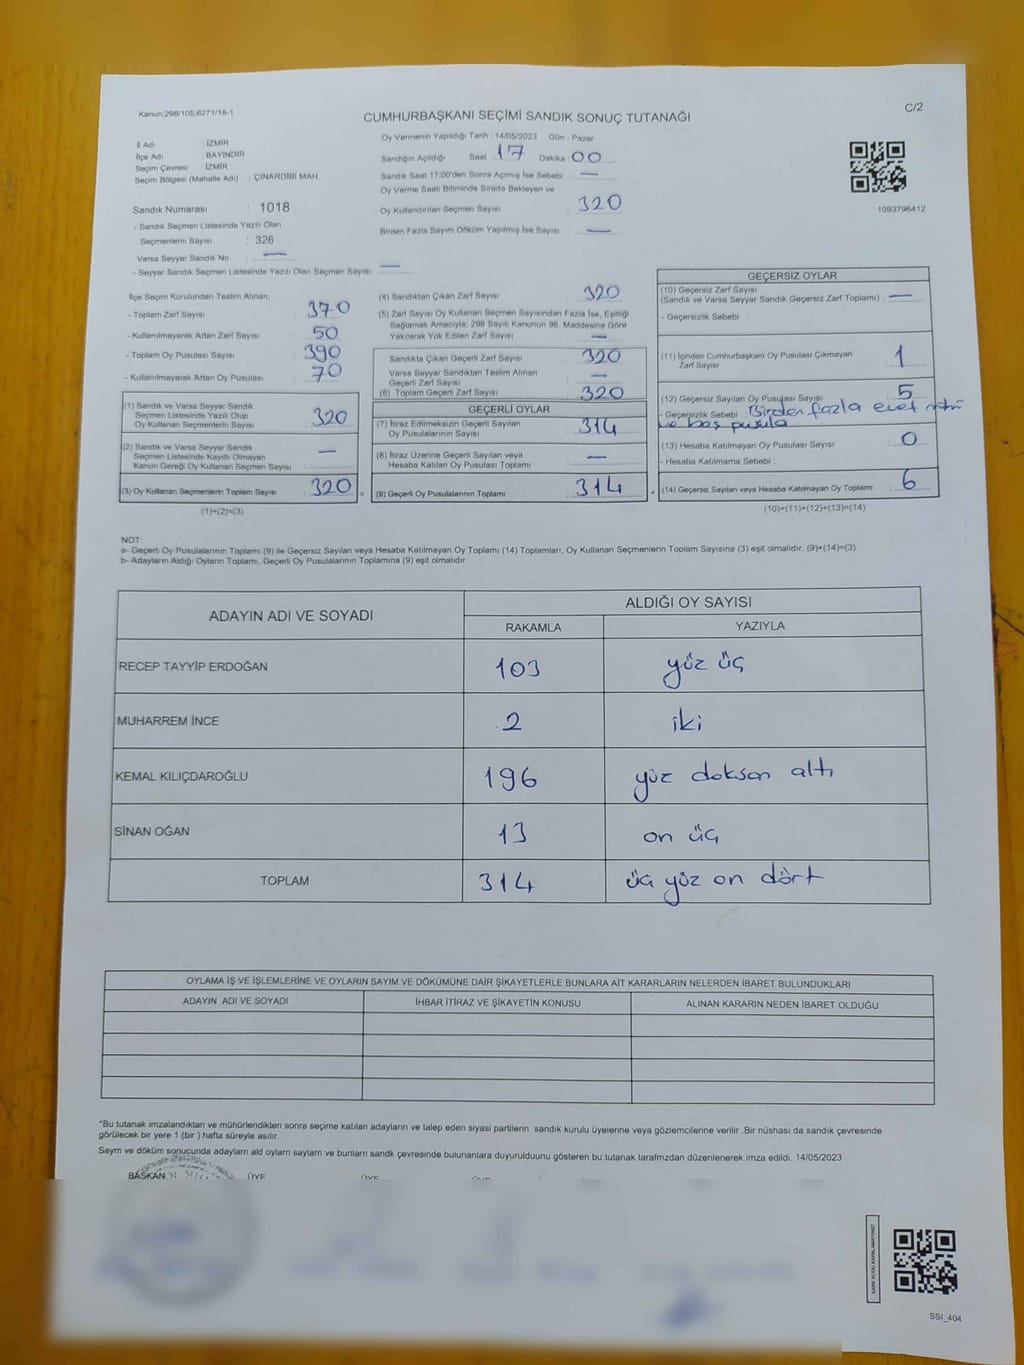 Kanun;298/105;6271/18-1
C/2
CUMHURBAŞKANI SEÇİMİ SANDIK SONUÇ TUTANAĞI
İl Adı : İZMİR
İlçe Adı : BAYINDIR
Seçim Çevresi : İZMİR
Seçim Bölgesi (Mahalle Adı) : ÇINARDİBİ MAH.
Sandık Numarası : 1018
- Sandık Seçmen Listesinde Yazılı Olan
Seçmenlerin Sayısı : 326
Varsa Seyyar Sandık No : —
- Seyyar Sandık Seçmen Listesinde Yazılı Olan Seçmen Sayısı: —
Oy Vermenin Yapıldığı Tarih : 14/05/2023 Gün : Pazar
Sandığın Açıldığı Saat 17 Dakika 00
Sandık Saat 17:00'den Sonra Açılmış İse Sebebi : —
Oy Verme Saati Bitiminde Sırada Bekleyen ve
Oy Kullandırılan Seçmen Sayısı : 320
Birden Fazla Sayım Döküm Yapılmış İse Sayısı : —
1093796412
İlçe Seçim Kurulundan Teslim Alınan;
- Toplam Zarf Sayısı : 370
- Kullanılmayarak Artan Zarf Sayısı : 50
- Toplam Oy Pusulası Sayısı : 390
- Kullanılmayarak Artan Oy Pusulası : 70
(1) Sandık ve Varsa Seyyar Sandık
Seçmen Listesinde Yazılı Olup
Oy Kullanan Seçmenlerin Sayısı : 320
(2) Sandık ve Varsa Seyyar Sandık
Seçmen Listesinde Kayıtlı Olmayan
Kanun Gereği Oy Kullanan Seçmen Sayısı : —
(3) Oy Kullanan Seçmenlerin Toplam Sayısı : 320 =
(1)+(2)=(3)
(4) Sandıktan Çıkan Zarf Sayısı : 320
(5) Zarf Sayısı Oy Kullanan Seçmen Sayısından Fazla İse, Eşitliği
Sağlamak Amacıyla; 298 Sayılı Kanunun 98. Maddesine Göre
Yakılarak Yok Edilen Zarf Sayısı : —
Sandıkta Çıkan Geçerli Zarf Sayısı : 320
Varsa Seyyar Sandıktan Teslim Alınan
Geçerli Zarf Sayısı : —
(6) Toplam Geçerli Zarf Sayısı : 320
GEÇERLİ OYLAR
(7) İtiraz Edilmeksizin Geçerli Sayılan
Oy Pusulalarının Sayısı : 314
(8) İtiraz Üzerine Geçerli Sayılan veya
Hesaba Katılan Oy Pusulası Toplamı : —
(9) Geçerli Oy Pusulalarının Toplamı : 314 +
GEÇERSİZ OYLAR
(10) Geçersiz Zarf Sayısı
(Sandık ve Varsa Seyyar Sandık Geçersiz Zarf Toplamı) : —
- Geçersizlik Sebebi :
(11) İçinden Cumhurbaşkanı Oy Pusulası Çıkmayan
Zarf Sayısı : 1
(12) Geçersiz Sayılan Oy Pusulası Sayısı : 5
- Geçersizlik Sebebi : Birden fazla evet mührü
ve boş pusula
(13) Hesaba Katılmayan Oy Pusulası Sayısı : 0
- Hesaba Katılmama Sebebi :
(14) Geçersiz Sayılan veya Hesaba Katılmayan Oy Toplamı : 6
(10)+(11)+(12)+(13)=(14)
NOT:
a- Geçerli Oy Pusulalarının Toplamı (9) ile Geçersiz Sayılan veya Hesaba Katılmayan Oy Toplamı (14) Toplamları, Oy Kullanan Seçmenlerin Toplam Sayısına (3) eşit olmalıdır. (9)+(14)=(3)
b- Adayların Aldığı Oyların Toplamı, Geçerli Oy Pusulalarının Toplamına (9) eşit olmalıdır.
ADAYIN ADI VE SOYADI
ALDIĞI OY SAYISI
RAKAMLA YAZIYLA
RECEP TAYYİP ERDOĞAN 103 yüz üç
MUHARREM İNCE 2 iki
KEMAL KILIÇDAROĞLU 196 yüz doksan altı
SİNAN OĞAN 13 on üç
TOPLAM 314 üç yüz on dört
OYLAMA İŞ VE İŞLEMLERİNE VE OYLARIN SAYIM VE DÖKÜMÜNE DAİR ŞİKAYETLERLE BUNLARA AİT KARARLARIN NELERDEN İBARET BULUNDUKLARI
ADAYIN ADI VE SOYADI İHBAR İTİRAZ VE ŞİKAYETİN KONUSU ALINAN KARARIN NEDEN İBARET OLDUĞU
*Bu tutanak imzalandıktan ve mühürlendikten sonra seçime katılan adayların ve talep eden siyasi partilerin sandık kurulu üyelerine veya gözlemcilerine verilir .Bir nüshası da sandık çevresinde
görülecek bir yere 1 (bir ) hafta süreyle asılır.
Sayım ve döküm sonucunda adayların aldığı oyların sayıları ve bunların sandık çevresinde bulunanlara duyurulduğunu gösteren bu tutanak tarafımızdan düzenlenerek imza edildi. 14/05/2023
BAŞKAN ÜYE ÜYE ÜYE
KARE KODU KARALAMAYINIZ!
SSI_404